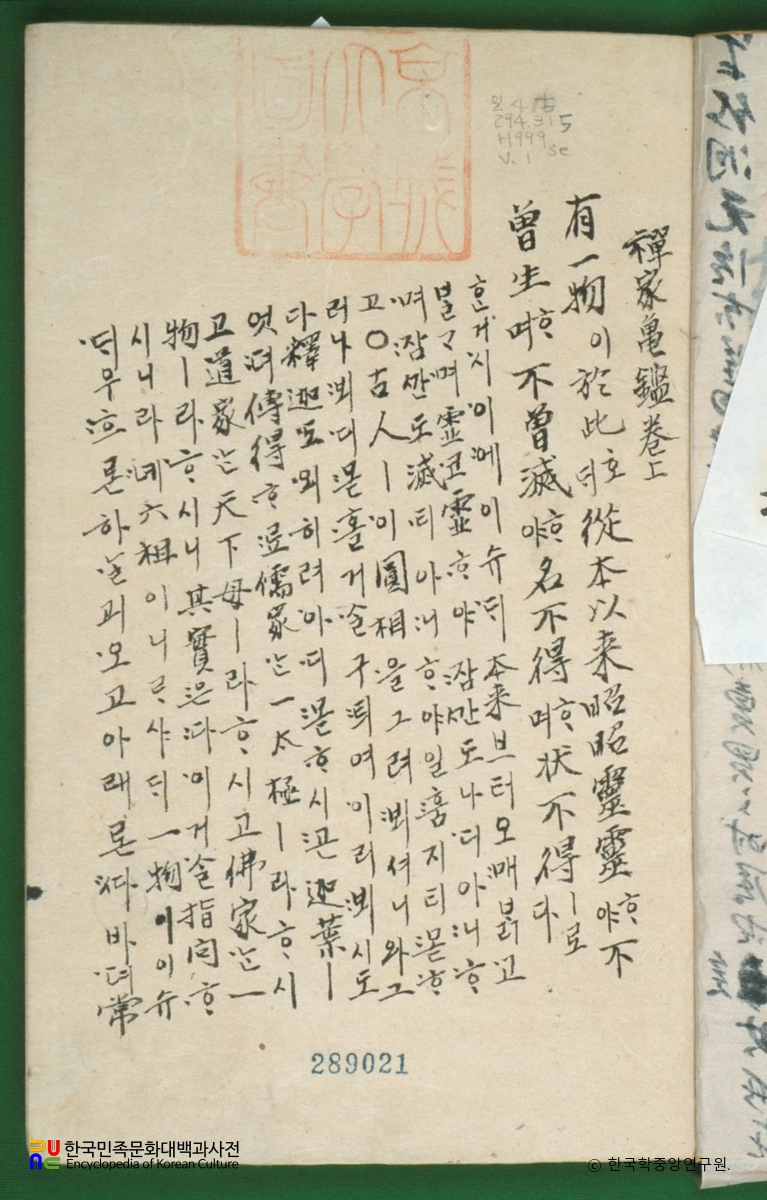 일사 古
294.315
H999se
V.1
京城
大學
圖章
禪家亀鑑卷上
有一物이於此호ᄃᆡ從本以来昭昭靈靈ᄒᆞ야不
曾生ᄒᆞ며不曾滅ᄒᆞ야名不得ᄒᆞ며状不得ㅣ로다
ᄒᆞᆫ거시이에이슈ᄃᆡ本來브터오매ᄇᆞᆰ고
ᄆᆞᆯᄀᆞ며靈코靈ᄒᆞ야잠ᄭᅡᆫ도나디아니ᄒᆞ
며잠ᄭᅡᆫ도滅티아니ᄒᆞ야일훔지티몯ᄒᆞ
고○古人ㅣ이圓相을그려뵈셔니와그
러나뵈디몯홀거슬구틔여이리뵈시도
다釋迦도외히려아디몯ᄒᆞ시곤迦葉ㅣ
엇뎌傳得ᄒᆞ료儒家ᄂᆞᆫ一太極ㅣ라ᄒᆞ시
고道家ᄂᆞᆫ天下母ㅣ라ᄒᆞ시고佛家ᄂᆞᆫ一
物ㅣ라ᄒᆞ시니其實은다이거슬指向ᄒᆞ
시니라녜六祖이니ᄅᆞ샤ᄃᆡ一物이이슈
ᄃᆡ우흐론하ᄂᆞᆯ괴오고아래론ᄯᅡ바텨常
289021
한국민족문화대백과사전
Encyclopedia of Korean Culture
© 한국학중앙연구원.